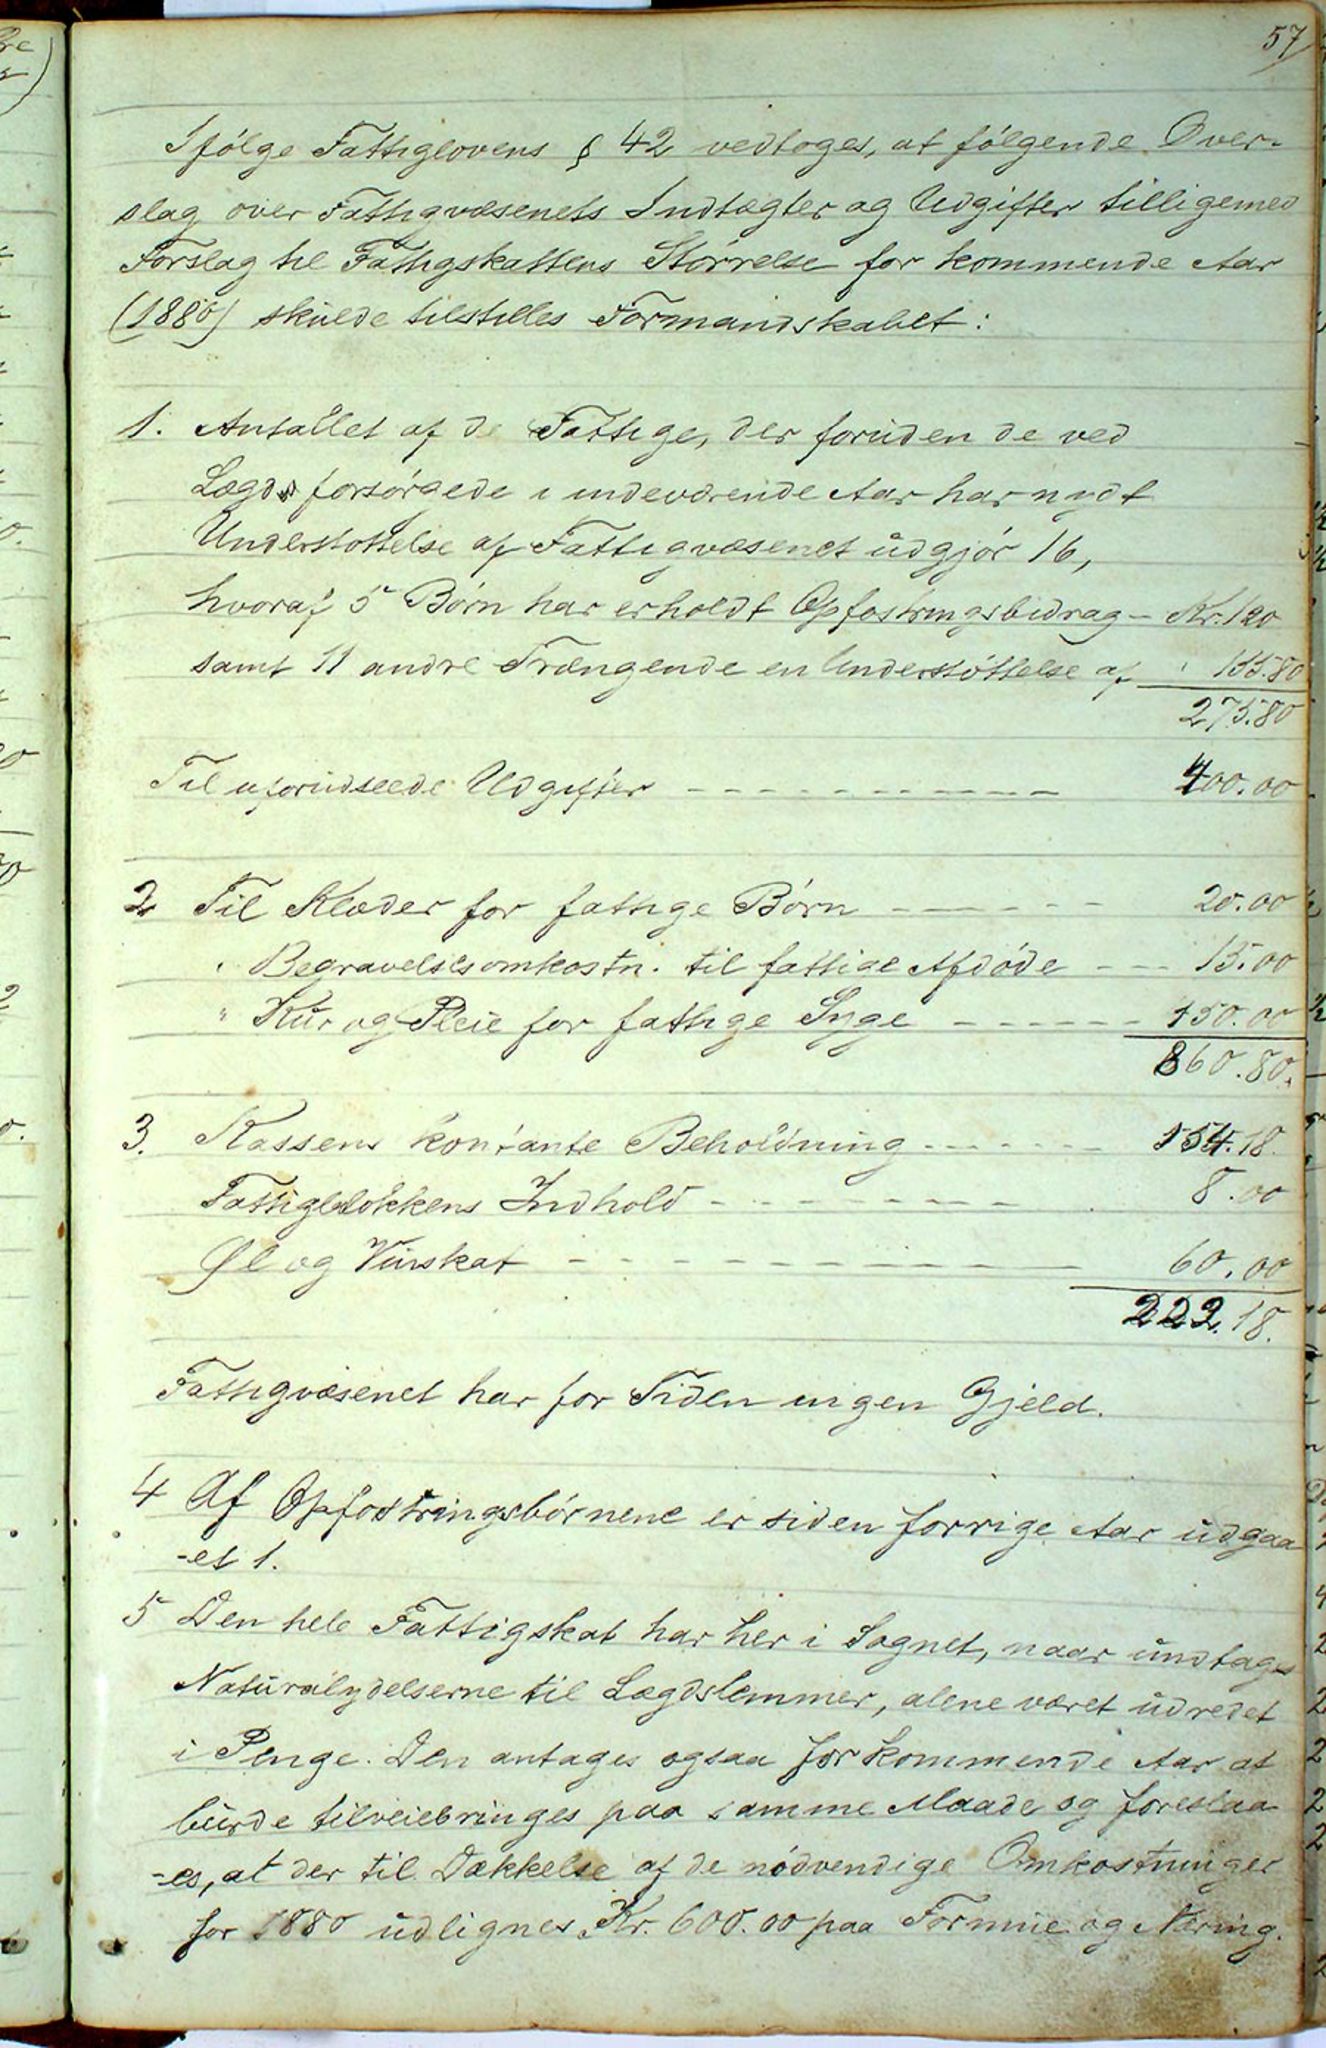 57
Ifølge Fattiglovens § 42 vedtoges, at følgende Over-
slag over Fattigvæsenets Indtægter og Udgifter tilligemed
Forslag til Fattigskattens Størrelse for kommende Aar
(1880) skulde tilstilles Formandskabet:
1. Antallet af de Fattige, der foruden de ved
Lægd forsørgede i indeværende Aar har nydt
Understøttelse af Fattigvæsenet udgjør 16,
hvoraf 5 Børn har erholdt Opfostringsbidrag - Kr. 120
samt 11 andre Trængende en Understøttelse af " 155.80
275.80
Til uforudseede Udgifter - - - - - - - - - - 400.00
2 Til Klæder for fattige Børn - - - - - 20.00
" Begravelsesomkostn. til fattige Afdøde - - - 15.00
" Kur og Pleie for fattige Syge - - - - - - 150.00
860.80.
3. Kassens kontante Beholdning - - - - - 154.18.
Fattigblokkens Indhold - - - - - - - - 8.00
Øl og Vinskat - - - - - - - - - - - 60.00
222.18.
Fattigvæsenet har for Tiden ingen Gjeld.
4 Af Opfostringsbørnene er siden forrige Aar udgaa
-et 1.
5 Den hele Fattigskat har her i Sognet, naar undtages
Naturalydelserne til Lægdslemmer, alene været udredet
i Penge. Den antages ogsaa for kommende Aar at
burde tilveiebringes paa samme Maade og foreslaa
-es, at der til Dækkelse af de nødvendige Omkostninger
for 1880 udlignes Kr. 600.00 paa Formue og Næring.